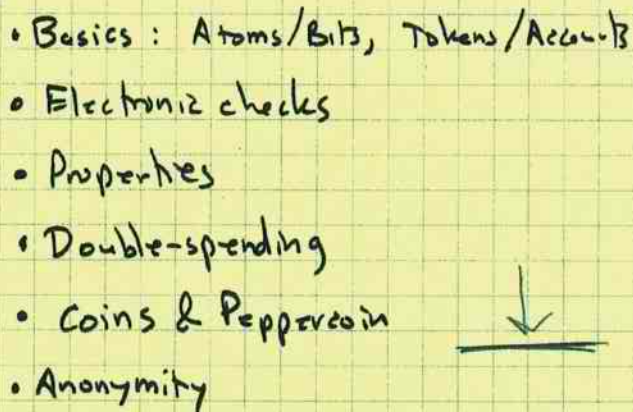 • Basics : Atoms/Bits, Tokens/Accounts
• Electronic checks
• Properties
• Double-spending
• Coins & Peppercoin
• Anonymity